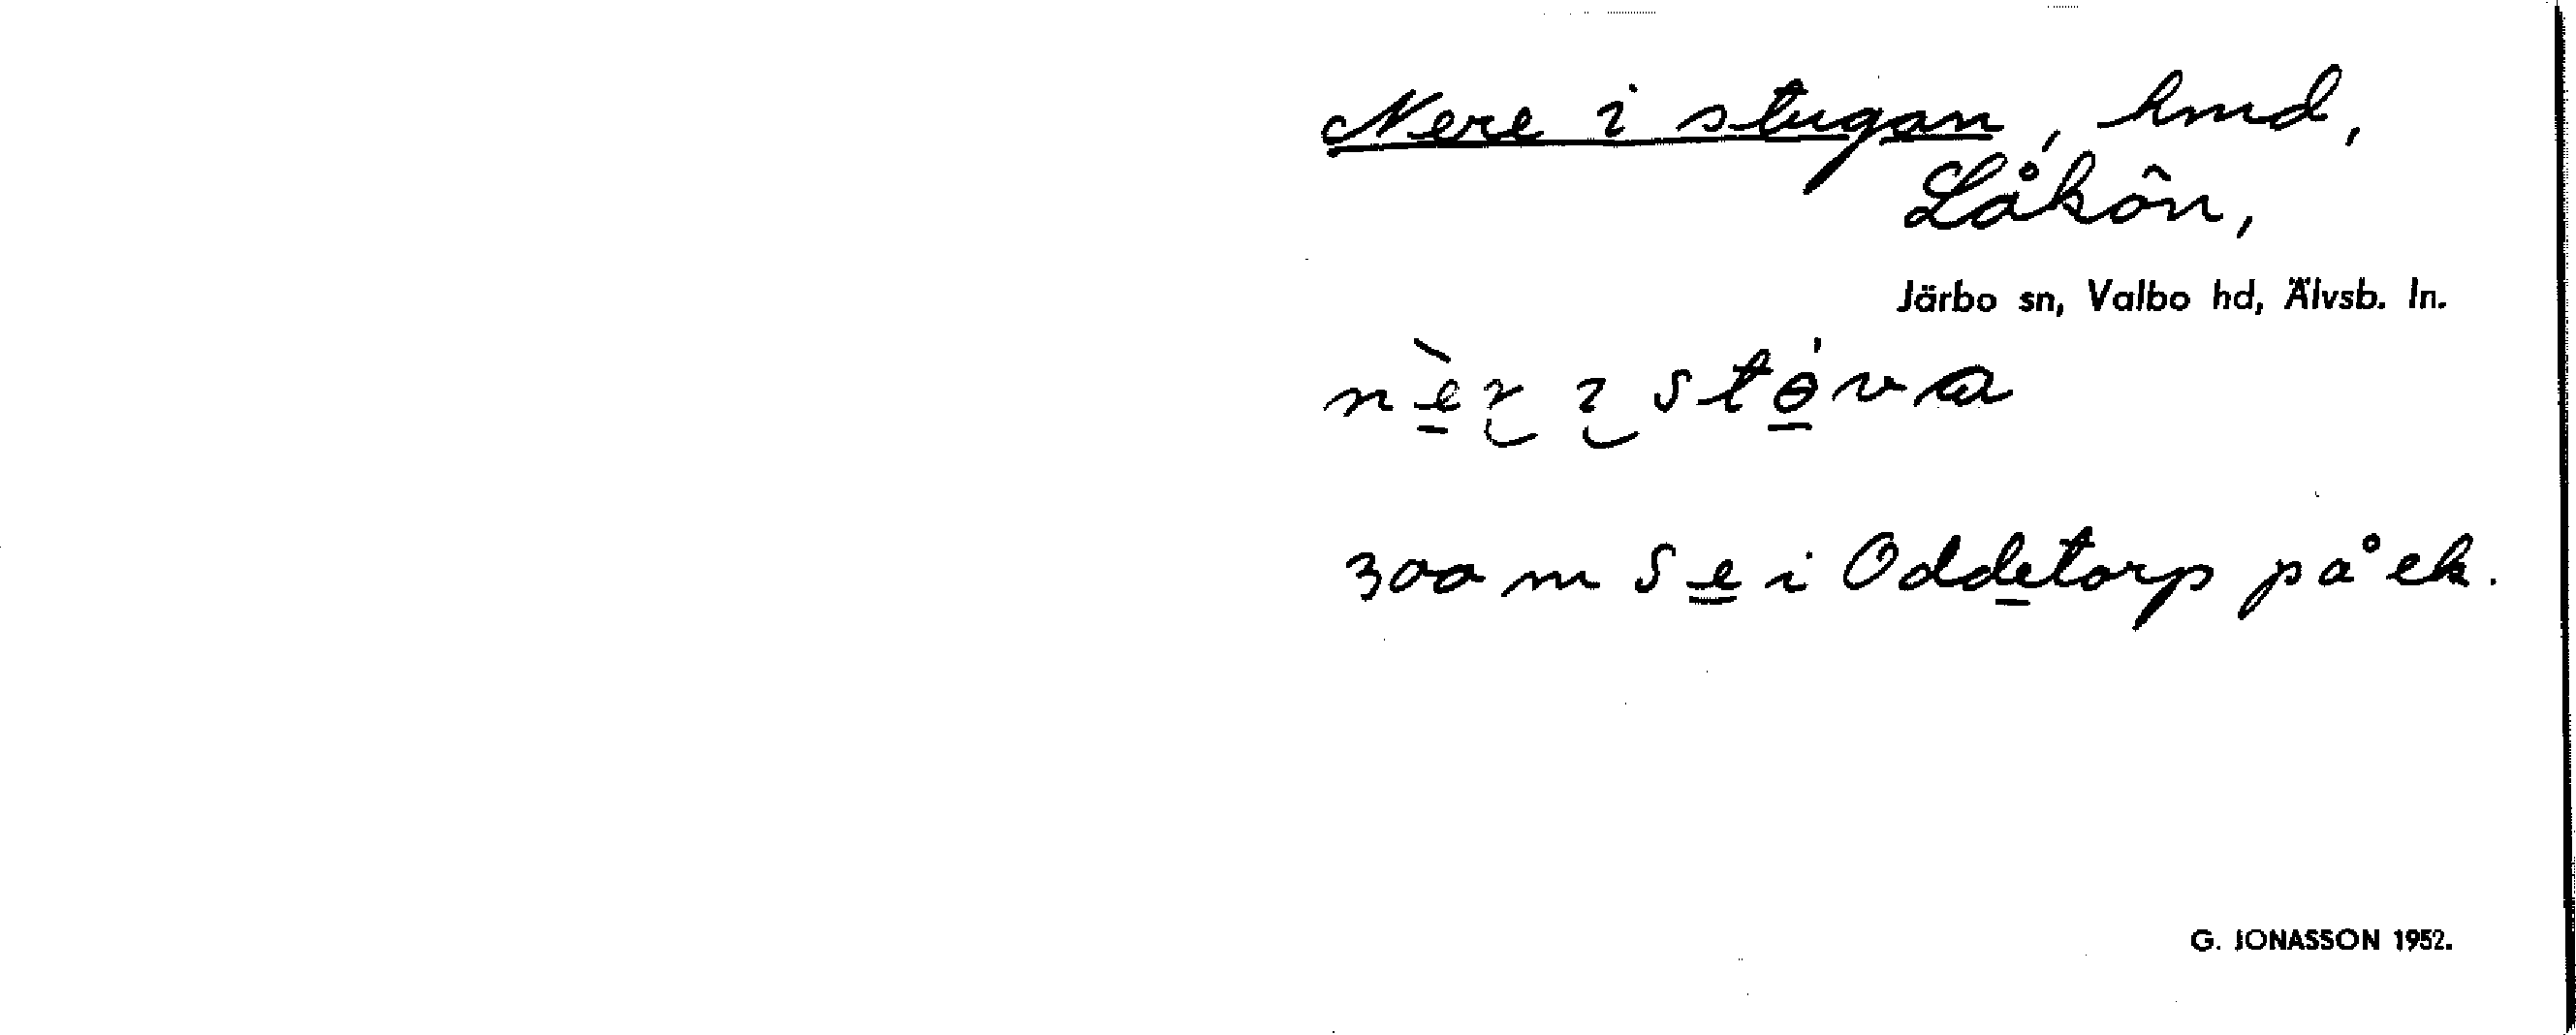 Nere i stugan, hmd,
Låkôn,
Järbo sn, Valbo hd, Älvsb. ln.
300 m S e i Oddetorp på ek.
G. JONASSON 1952.